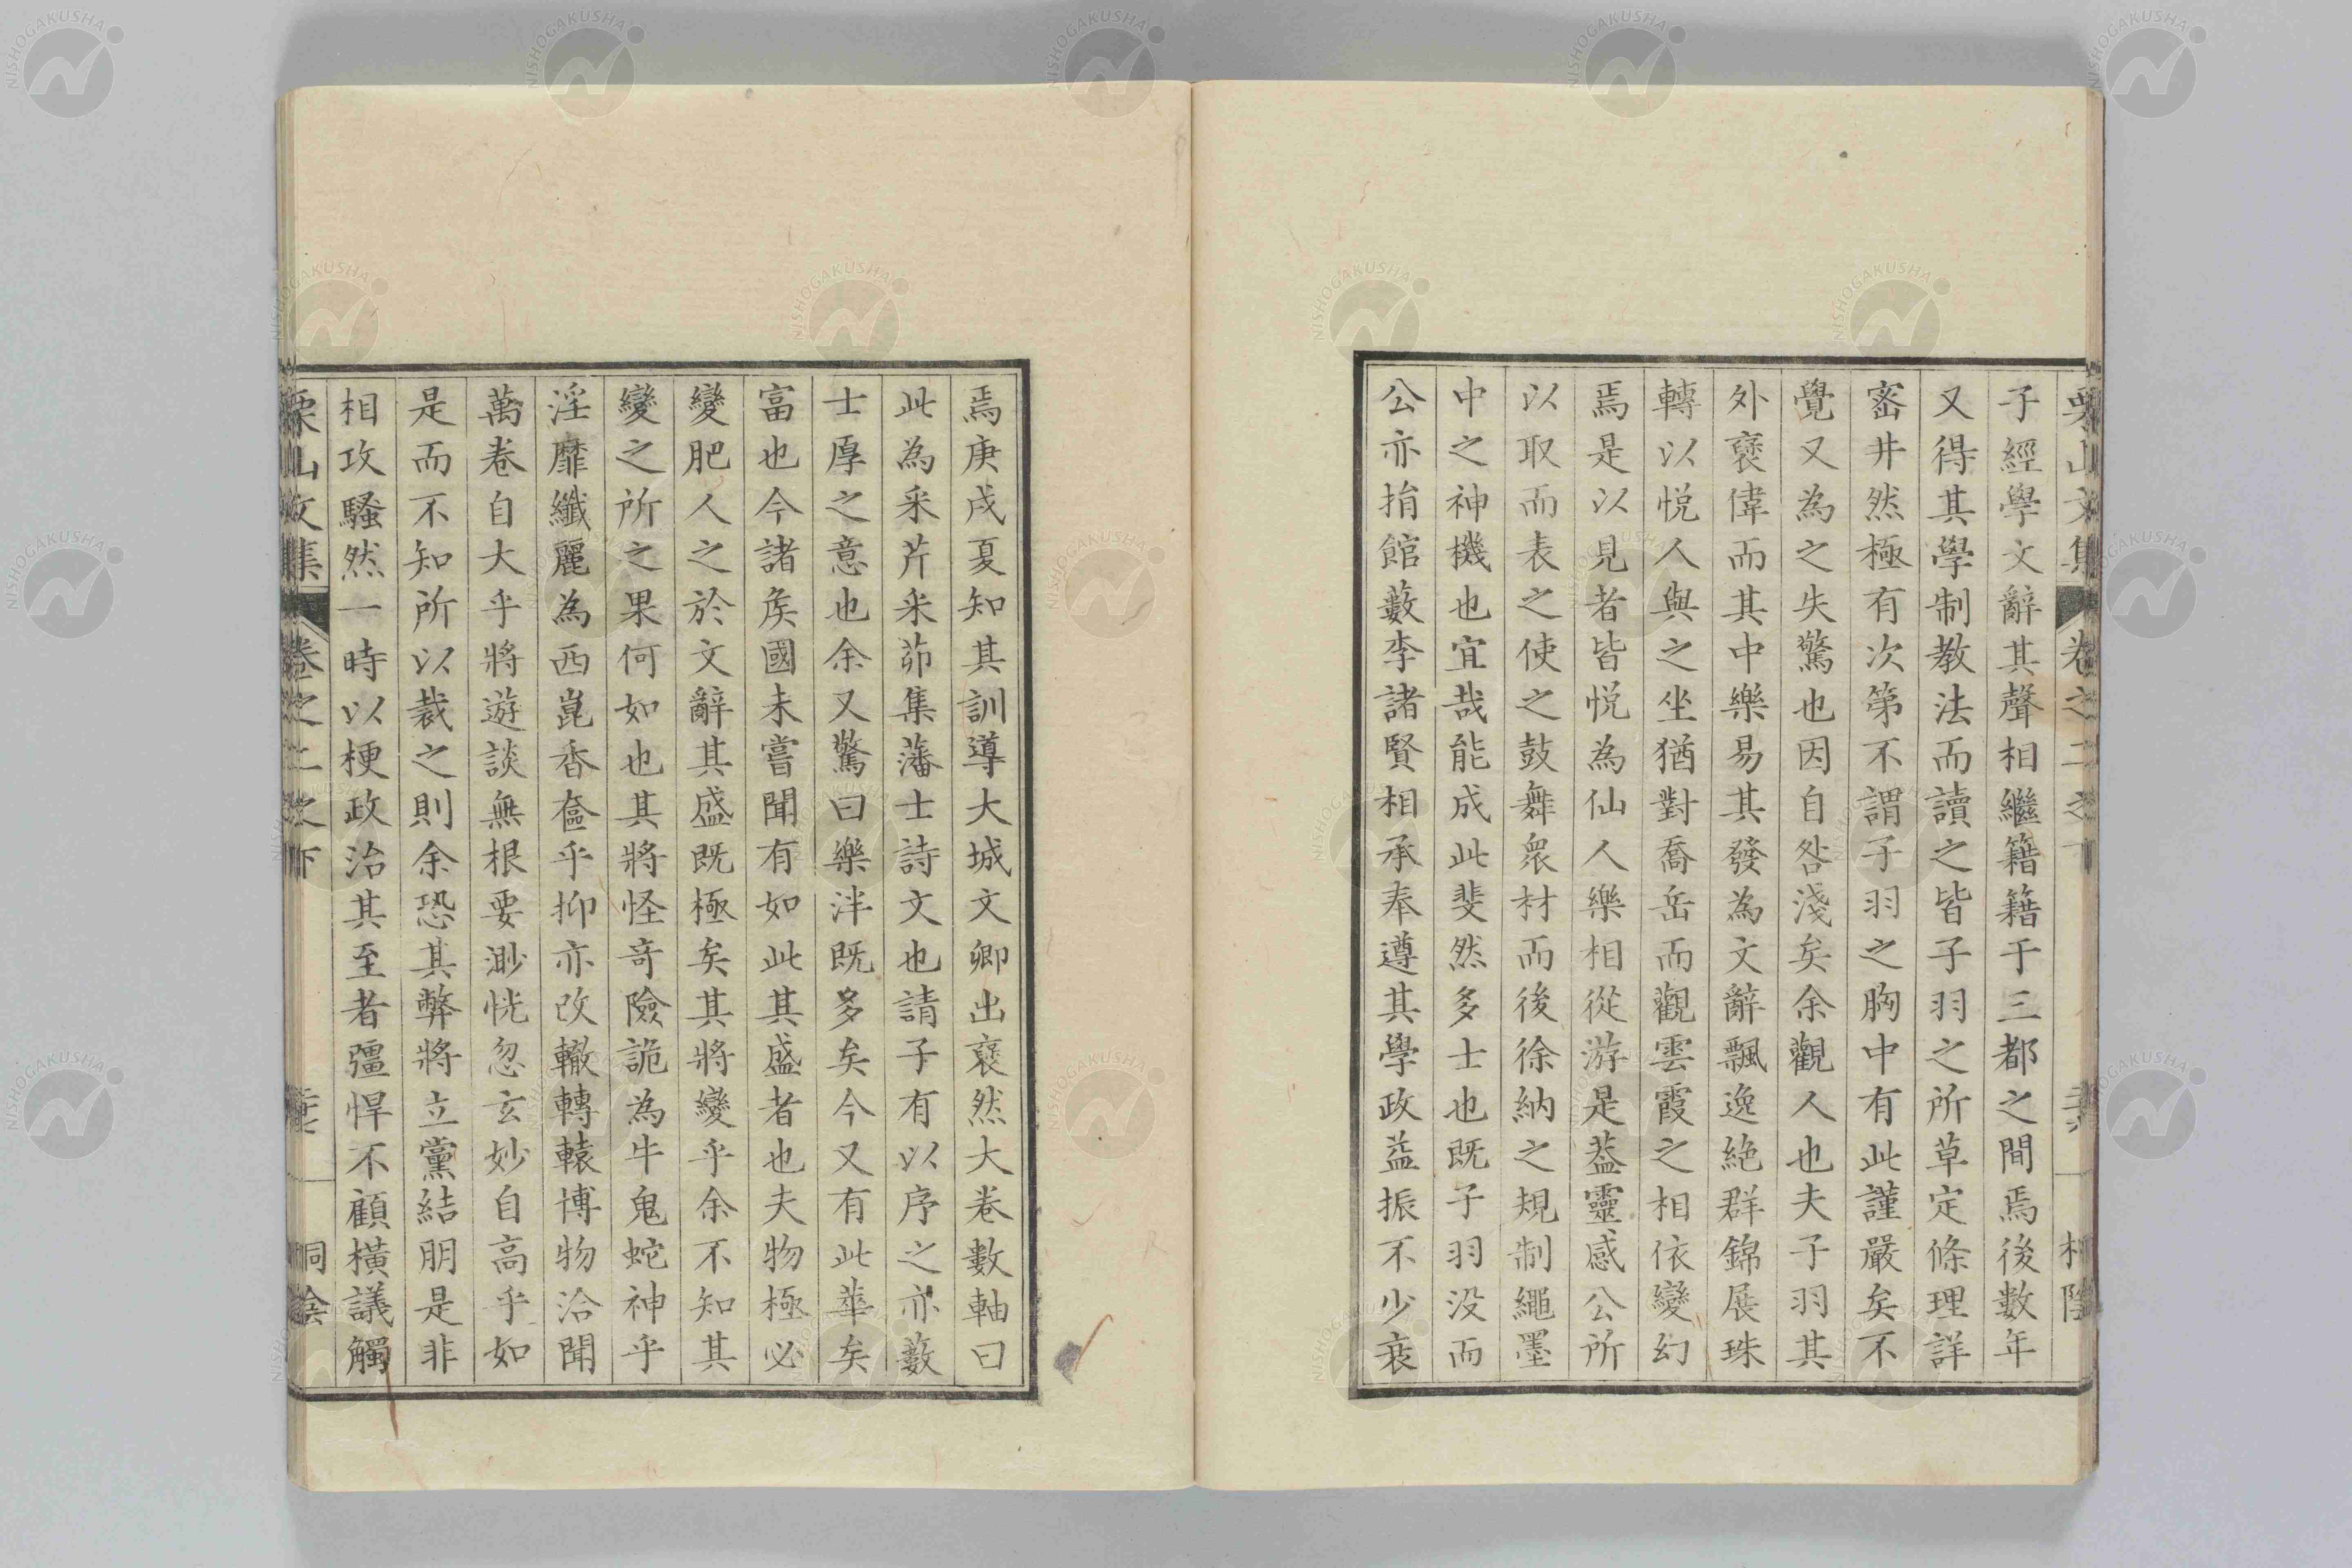 栗山文集 卷之二之下 桐陰
子經學文辭其聲相繼籍籍于三都之間焉後數年
又得其學制教法而讀之皆子羽之所草定條理詳
密井然極有次第不謂子羽之胸中有此謹嚴矣不
覺又為之失驚也因自咎淺矣余觀人也夫子羽其
外褎偉而其中樂易其發為文辭飄逸絶群錦展珠
轉以悦人與之坐猶對喬岳而觀雲霞之相依變幻
焉是以見者皆悦為仙人樂相從游是葢靈感公所
以取而表之使之鼓舞衆材而後徐納之規制繩墨
中之神機也宜哉能成此斐然多士也既子羽没而
公亦捐館藪李諸賢相承奉遵其學政益振不少衰
焉庚戌夏知其訓導大城文卿出褎然大卷數軸曰
此為采芹采茆集藩士詩文也請子有以序之亦藪
士厚之意也余又驚曰樂泮既多矣今又有此華矣
富也今諸矦國未嘗聞有如此其盛者也夫物極必
變肥人之於文辭其盛既極矣其將變乎余不知其
變之所之果何如也其將怪奇險詭為牛鬼蛇神乎
淫靡纖麗為西崑香奩乎抑亦改轍轉轅博物洽聞
萬卷自大乎將遊談無根要渺恍忽玄妙自高乎如
是而不知所以裁之則余恐其弊將立黨結朋是非
相攻騷然一時以梗政治其至者彊悍不顧橫議觸
栗山文集 卷之二之下 桐陰
NISHOGAKUSHA